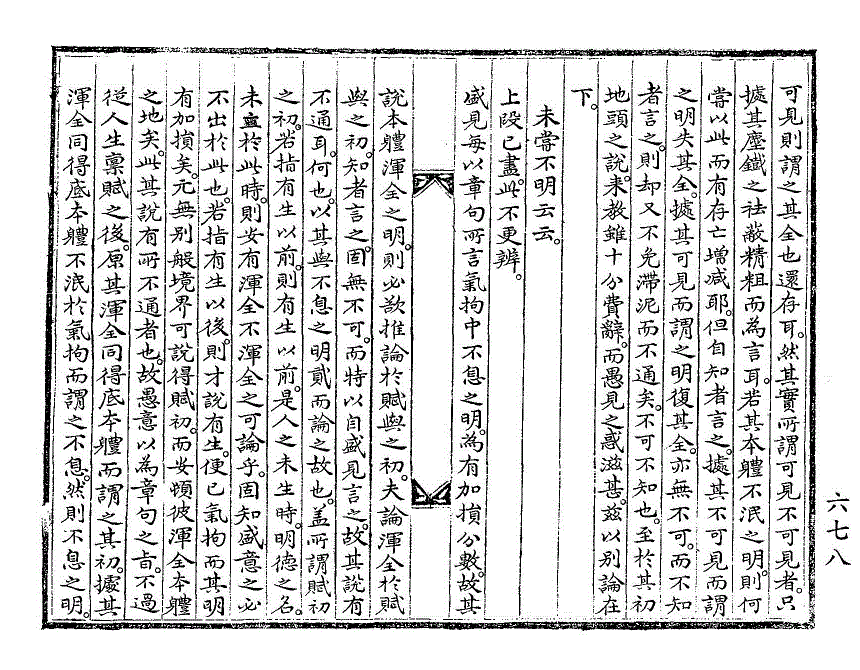 可見則謂之其全也還存耳。然其實所謂可見不可見者。只
據其塵鐵之祛蔽精粗而為言耳。若其本軆不泯之明則何
嘗以此而有存亡增減耶。但自知者言之。據其不可見而謂
之明失其全。據其可見而謂之明復其全。亦無不可。而不知
者言之。則却又不免滯泥而不通矣。不可不知也。至於其初
地頭之說。來教雖十分費辭。而愚見之惑滋甚。玆以別論在
下。
未嘗不明云云。
上段已盡。此不更辨。
盛見每以章句所言氣拘中不息之明。為有加損分數。故其
說本軆渾全之明。則必欲推論於賦與之初。夫論渾全於賦
與之初。知者言之。固無不可。而特以自盛見言之。故其說有
不通耳。何也。以其與不息之明貳而論之故也。盖所謂賦初
之初。若指有生以前。則有生以前。是人之未生時。明德之名。
未立於此時。則安有渾全不渾全之可論乎。固知盛意之必
不出於此也。若指有生以後。則才說有生。便已氣拘而其明
有加損矣。元無別般境界可說得賦初。而安頓彼渾全本軆
之地矣。此其說有所不通者也。故愚意以為章句之旨。不過
從人生稟賦之後。原其渾全同得底本軆而謂之其初。據其
渾全同得底本軆不泯於氣拘而謂之不息。然則不息之明。
六七八